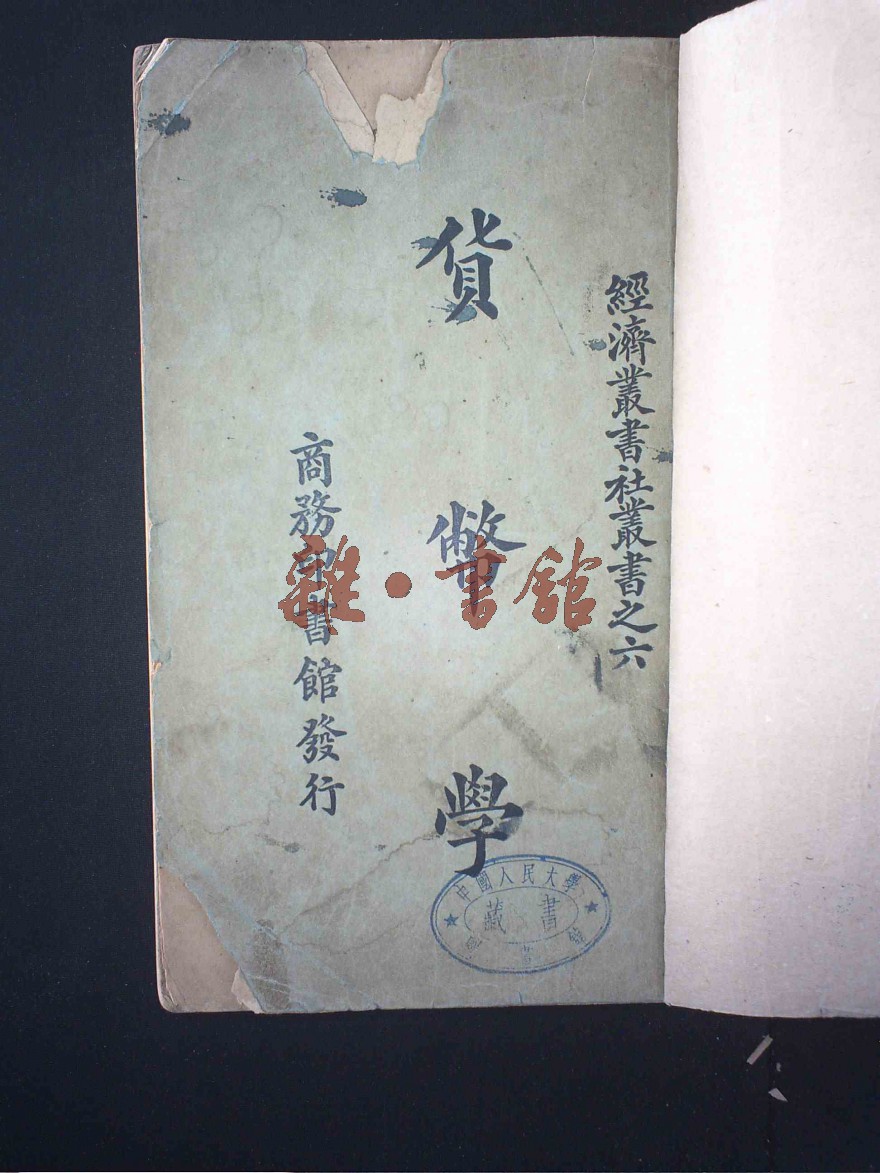 經濟叢書社叢書之六
貨幣學
商務印書館發行
雜·書館
中國人民大學
藏書